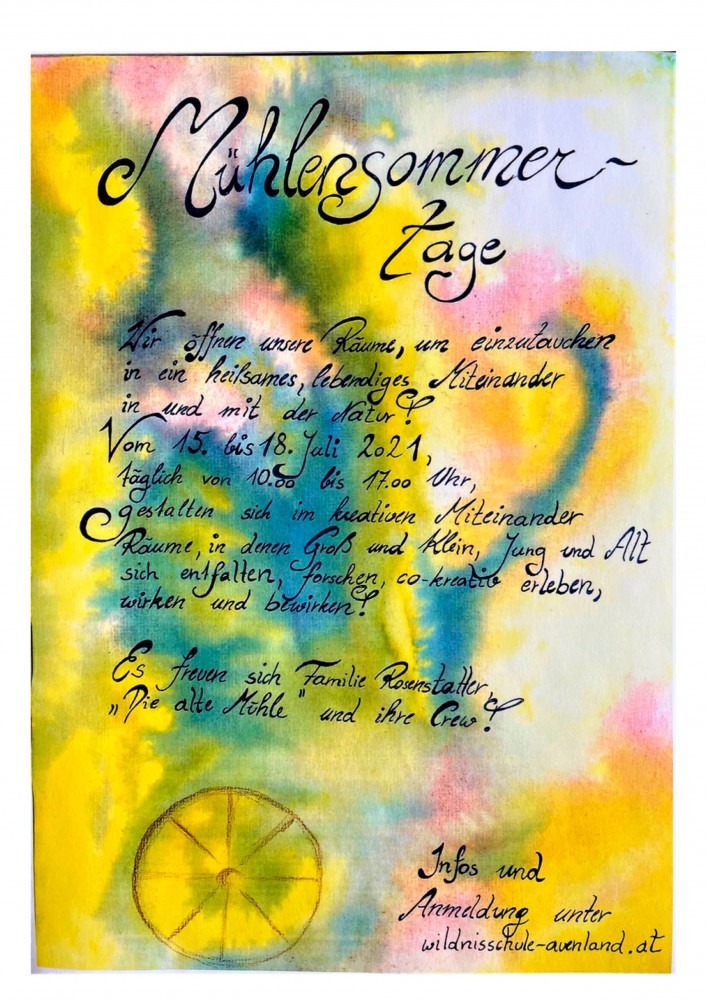 Mühlensommer-
tage
Wir öffnen unsere Räume, um einzutauchen
in ein heilsames, lebendiges Miteinander
in und mit der Natur!
Vom 15. bis 18. Juli 2021,
täglich von 10.00 bis 17.00 Uhr,
gestalten sich im kreativen Miteinander
Räume, in denen Groß und Klein, Jung und Alt
sich entfalten, forschen, co-kreativ erleben,
wirken und bewirken!
Es freuen sich Familie Rosenstatter,
„Die alte Mühle" und ihre Crew!
Infos und
Anmeldung unter
wildnisschule-avenland.at